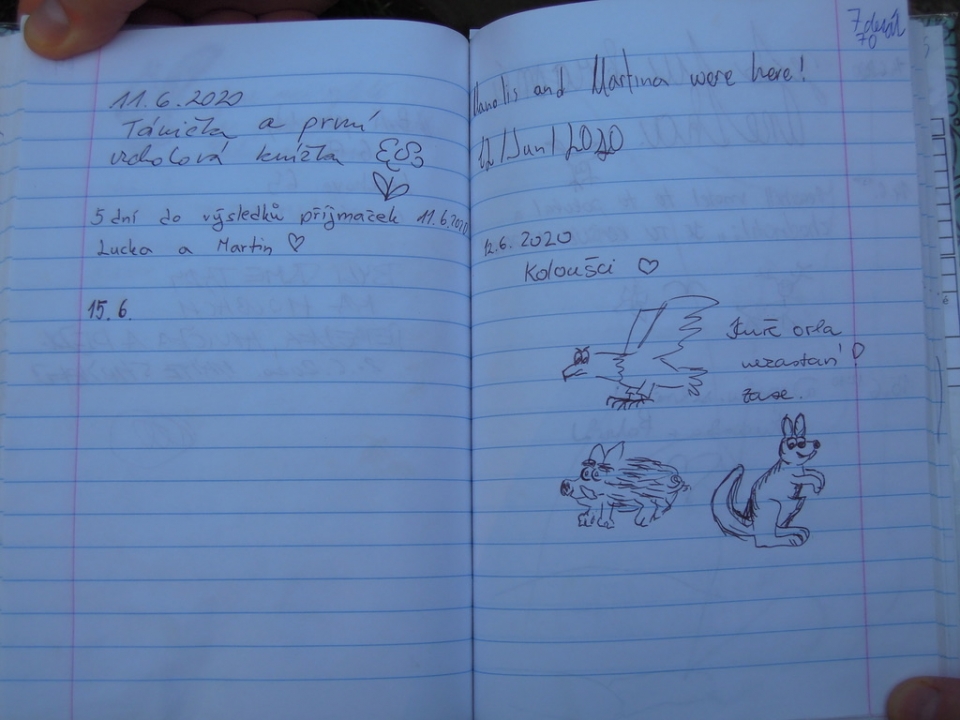 11.6.2020
Tánička a první
vrcholová knížka
5 dní do výsledků příjmaček 11.6.2020
Lucka a Martin ♡
15.6.
Manolis and Martina were here!
12/Jun/2020
12.6.2020
Koloušci ♡
Kuře orla
nezastaví!
zase.
70